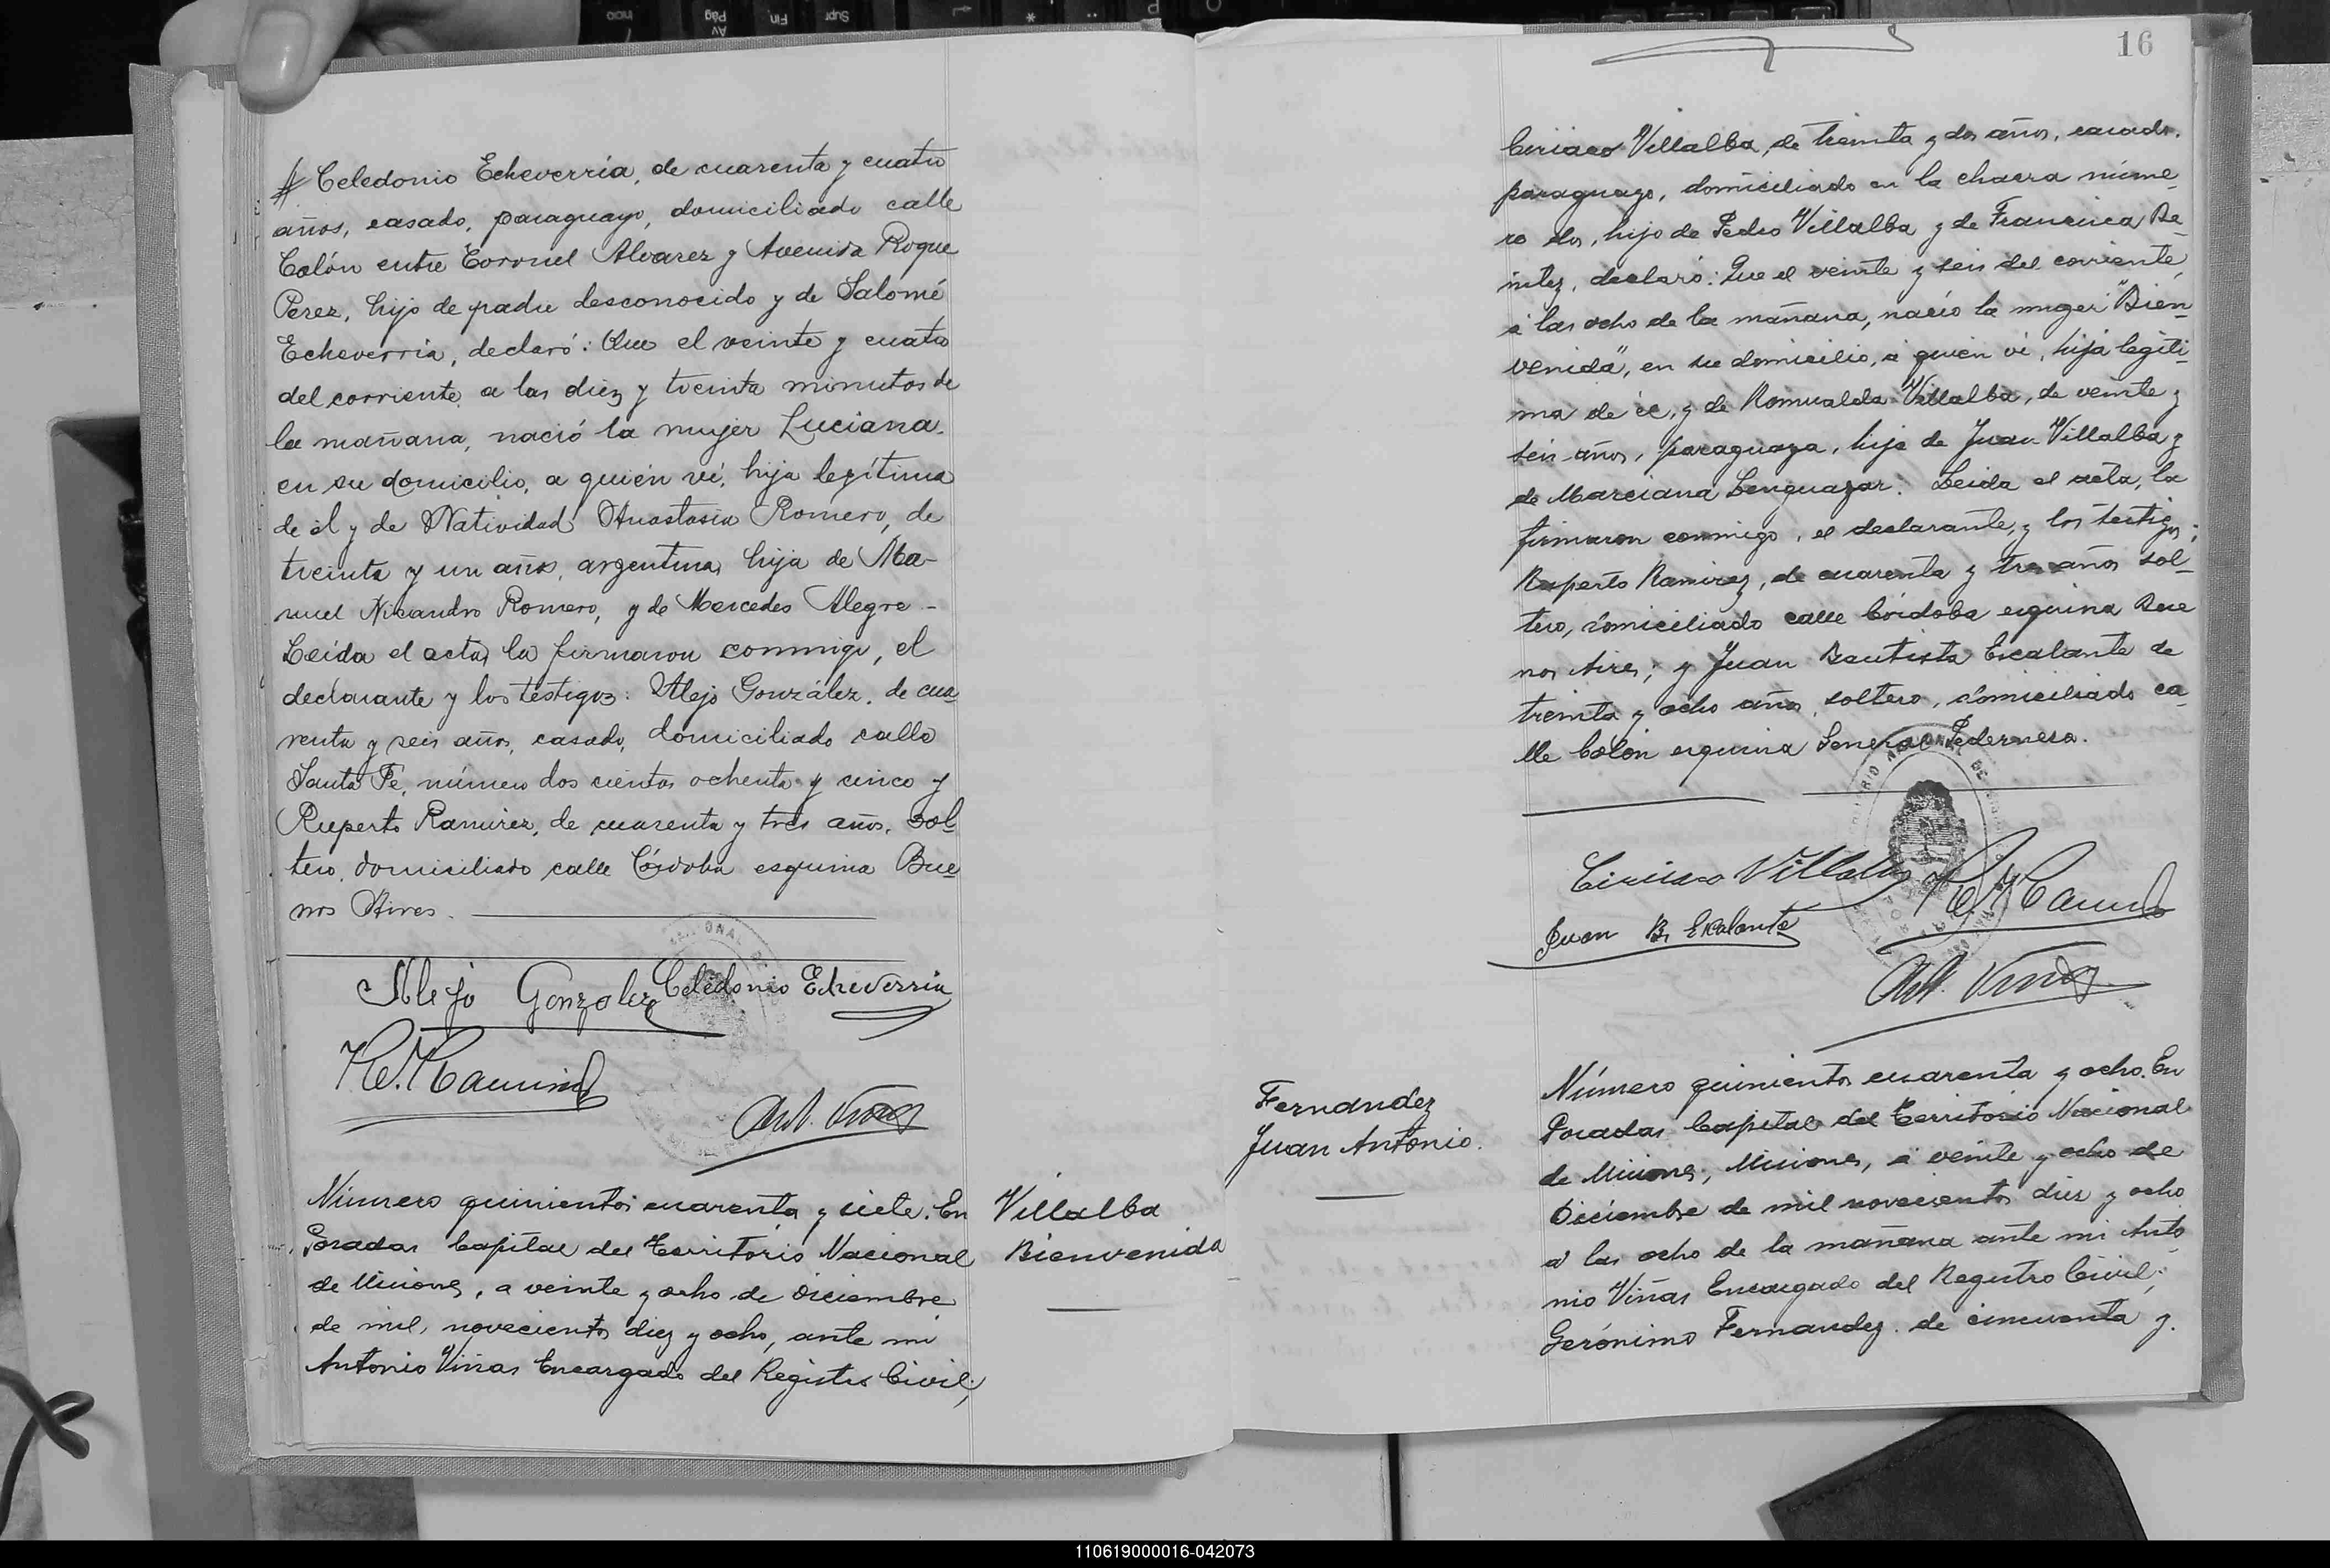 Celedonio Echeverría, de cuarenta y cuatro
años, casado, paraguayo, domiciliado calle
Colón entre Coronel Alvarez y Avenida Roque
Perez, hijo de padre desconocido y de Salomé
Echeverría, declaró: Que el veinte y cuatro
del corriente a las diez y treinta minutos de
la mañana, nació la mujer Luciana.
en su domicilio, a quién ví, hija legítima
de él y de Natividad Anastasia Romero, de
treinta y un años, argentina, hija de Ma-
nuel Nicandro Romero, y de Mercedes Alegre.-
Leída el acta, la firmaron conmigo, el
declarante y los testigos: Alejo González, de cua
renta y seis años, casado, domiciliado calle
Santa Fé, número dos cientos ochenta y cinco y
Ruperto Ramirez, de cuarenta y tres años, sol-
tero, domiciliado calle Córdoba esquina Bue-
nos Aires.
Alejo Gonzalez Celedonio Echeverria
Ant. Viñas
Número quinientos cuarenta y siete. En
Posadas Capital del Territorio Nacional
de Misiones, a veinte y ocho de Diciembre
de mil, novecientos diez y ocho, ante mi
Antonio Viñas Encargado del Registro Civil,
Villalba
Bienvenida
16
Ciriaco Villalba, de treinta y dos años, casado,
paraguayo, domiciliado en la chacra núme-
ro dos, hijo de Pedro Villalba y de Francisca Be-
nitez, declaró: Que el veinte y seis del corriente,
á las ocho de la mañana, nació la muger "Bien-
venida", en su domicilio, á quien ví, hija legíti-
ma de él, y de Romualda Villalba, de veinte y
seis años, paraguaya, hija de Juan Villalba y
de Marciana Lenguazar. Leida el acta, la
firmaron conmigo, el declarante, y los testigos;
Ruperto Ramirez, de cuarenta y tres años sol-
tero, domiciliado calle Córdoba esquina Bue
nos Aires; y Juan Bautista Escalante de
treinta y ocho años, soltero, domiciliado ca-
lle Colón esquina General Pedernera.
Ciriaco Villalba
Juan B. Escalante
Ant. Viñas
Fernandez
Juan Antonio.
Número quinientos cuarenta y ocho. En
Posadas Capital del Territorio Nacional
de Misiones, Misiones, á veinte y ocho de
Diciembre de mil novecientos diez y ocho
á las ocho de la mañana ante mi Anto
nio Viñas Encargado del Registro Civil;
Gerónimo Fernandez. de cincuenta y.
110619000016-042073